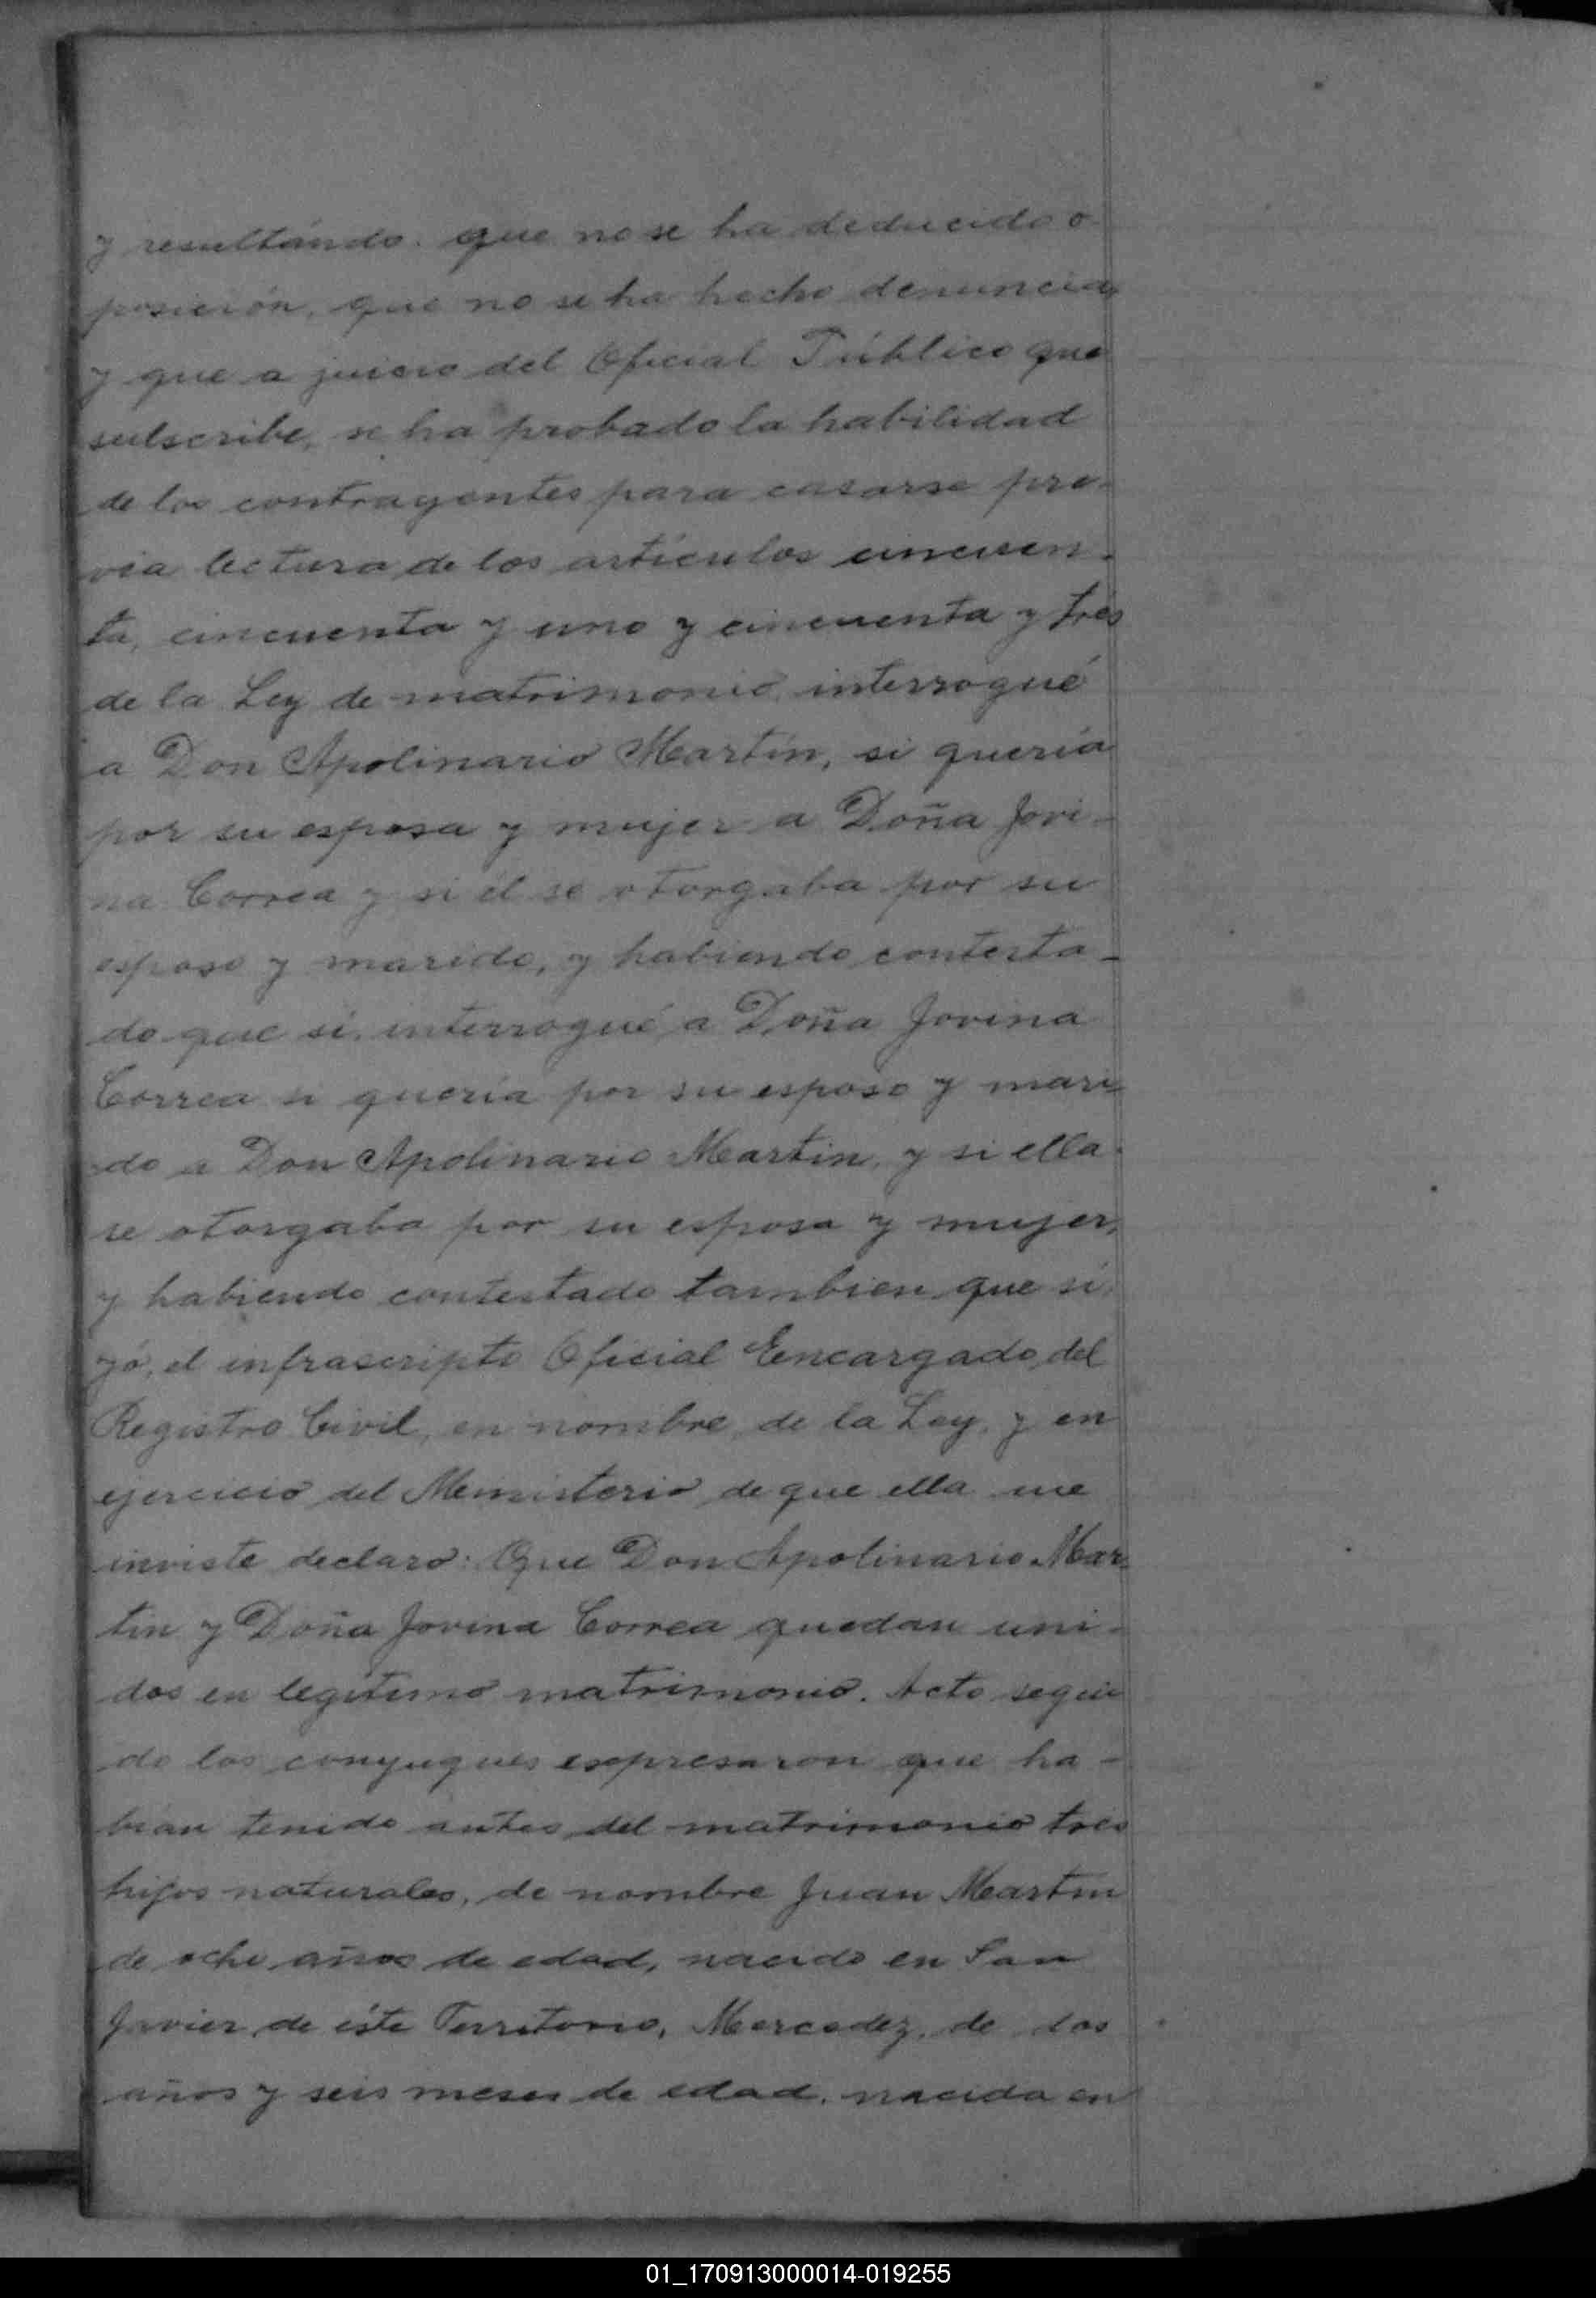 y resultándo. que no se ha deducido o
posición, que no se ha hecho denuncia,
y que a juicio del Oficial Público que
subscribe, se ha probado la habilidad
de los contrayentes para casarse pre-
via lectura de los artículos cincuen-
ta, cincuenta y uno y cincuenta y tres
de la Ley de matrimonio interrogué
a Don Apolinario Martín, si quería
por su esposa y mujer a Doña Jovi-
na Correa y si él se otorgaba por su
esposo y marido, y habiendo contesta-
do que sí, interrogué a Doña Jovina
Correa si quería por su esposo y mari-
do a Don Apolinario Martin, y si ella
se otorgaba por su esposa y mujer,
y habiendo contestado tambien que sí,
yó, el infrascripto Oficial Encargado del
Registro Civil, en nombre de la Ley, y en
ejercicio del Meministerio de que ella me
inviste declaro: Que Don Apolinario Mar-
tin y Doña Jovina Correa quedan uni-
dos en legítimo matrimonio. Acto segui
do los conyugues espresaron que ha-
bian tenido antes del matrimonio tres
hijos naturales, de nombre Juan Martin
de ocho años de edad, nacido en San
Javier de éste Territorio, Mercedez, de dos
años y seis meses de edad, nacida en
01_170913000014-019255